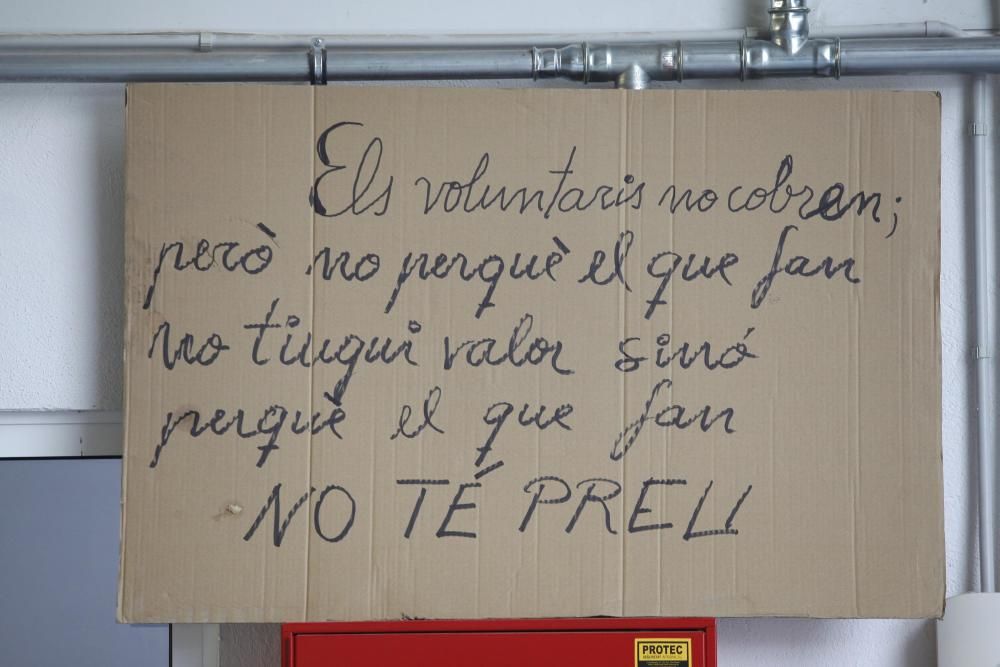 Els voluntaris no cobren;
però no perquè el que fan
no tingui valor sinó
perquè el que fan
NO TÉ PREU
PROTEC